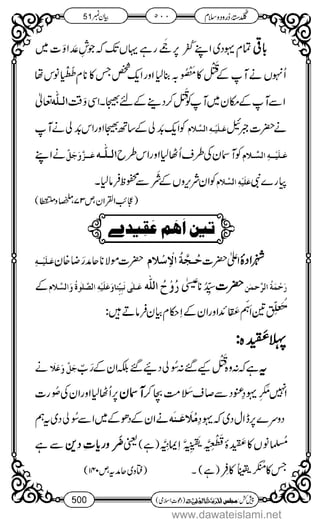 گلدستۂ دُرود و سلام ۵۰۰ بیان نمبر 51
باقی تمام یہودی اپنے کُفر پر جمے رہے یہاں تک کہ جوشِ عَداوَت میں
اُنہوں نے آپ کے قَتْل کا مَنْصُوبہ بنالیا اور ایک شخص جس کا نام طَطْیانوس تھا
اسے آپ کے مکان میں آپ کو قَتْل کردینے کے لئے بھیجا۔ اسی وَقت اللّٰہ تعالٰی
نے حضرت جبرئیل عَلَیْہِ السَّلام کو ایک بدلی کے ساتھ بھیجا اور اس بدلی نے آپ
عَلَیْہِ السَّلام کو آسمان کی طرف اُٹھالیا اور اس طرح اللّٰہ عَزَّوَجَلَّ نے اپنے
پیارے نبی عَلَیْہِ السَّلام کو ان شریروں کے شَر سے محفوظ فرمالیا۔
(عجائب القرآن، ص ۷۳، ملخصاً وملتقطاً)
تین اَہَم عَقِیدے
شہزادۂ اعلیٰ حضرت حُجَّۃُ الْاِسْلام حضرت مولانا حامد رضا خان عَلَیْہِ
رَحْمَۃُ الرَّحْمٰن حضرت سَیِّدُنا عیسیٰ رُوْحُ اللّٰہ عَلٰی نَبِیِّنَا وَعَلَیْہِ الصَّلٰوۃُ وَالسَّلام کے
مُتَعَلِّق تین اَہَم عقائد اور ان کے اَحکام بیان فرماتے ہیں:
پہلا عقیدہ:
یہ ہے کہ نہ وہ قَتْل کئے گئے نہ سولی دیے گئے بلکہ ان کے رَبّ جَلَّ وَعَلَا نے
انہیں مکرِ یہودِ عَنود سے صاف سلامت بچا کر آسمان پر اُٹھالیا اور ان کی صُورت
دوسرے پر ڈال دی کہ یہودِ مَلاعِنہ نے ان کے دھوکے میں اسے سولی دی یہ ہم
مسلمانوں کا عقیدۂ قَطْعِیَّہ یَقِیْنِیَّہ اِیمانِیَّہ (ہے) یعنی ضَروریاتِ دین سے ہے
جس کا مُنکِر یقیناً کافر (ہے)۔ (فتاویٰ حامدیہ، ص ۱۴۰)
500
www.dawateislami.net